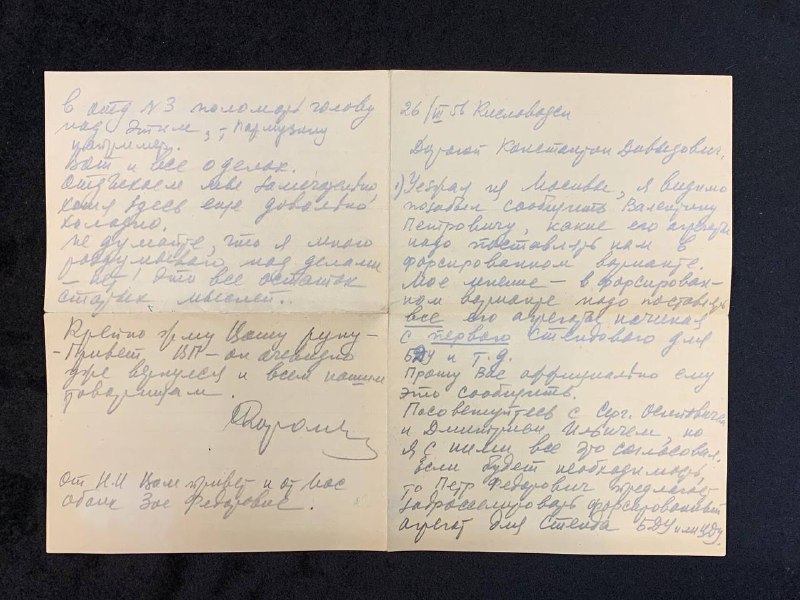 26/III 56 Кисловодск
Дорогой Константин Давыдович,
1) Уезжая из Москвы, я видимо
позабыл сообщить Валентину
Петровичу, какие его агрегаты
надо поставлять нам в
форсированном варианте.
Мое мнение – в форсирован-
ном варианте надо поставлять
все его агрегаты начиная
с первого стендового для
БДУ и т.д.
Прошу Вас официально ему
это сообщить.
Посоветуйтесь с Серг. Осиповичем
и Дмитрием Ильичем, но
я с ними все это согласовал.
Если будет необходимость,
то Петр Федорович предлагает
задросселировать форсированный
агрегат для стенда БДУ или ЦДУ.
в отд №3 поломать голову
над этим,
например.
Вот и все о делах.
Отдыхаем мы замечательно
хотя здесь еще довольно
холодно.
Не думайте, что я много
раздумываю над делами
– нет! Это все остаток
старых мыслей..
Крепко жму Вашу руку –
– Привет ВП – он очевидно
уже вернулся и всем нашим
товарищам.
Королев
От Н.И Вам привет и от нас
обоих Зое Федоровне.